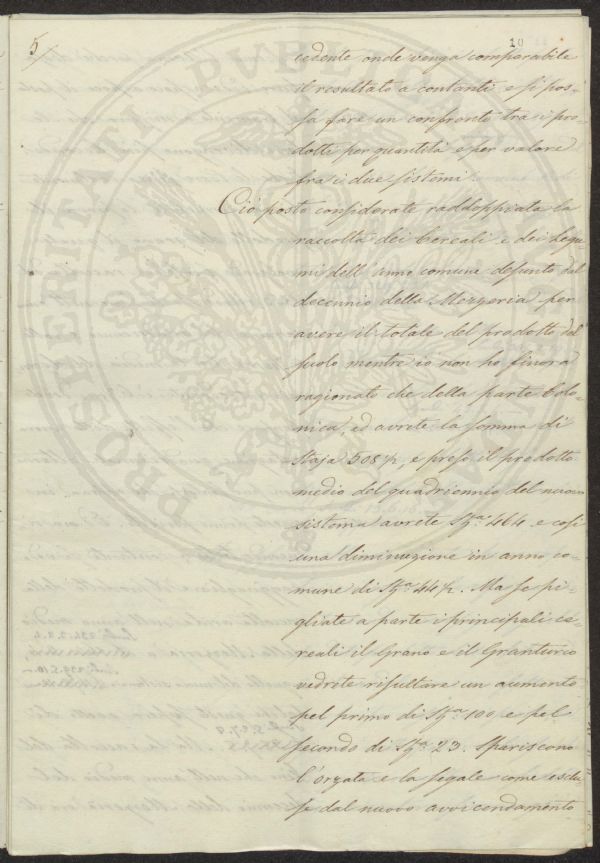 5/
10
cedente onde venga comparabile
il resultato a contanti e si pos-
sa fare un confronto tra i pro-
dotti per quantità e per valore
fra i due sistemi.
Ciò posto considerate raddoppiata la
raccolta dei Cereali e dei Legu
mi dell'anno comune desunto dal
decennio della Mezzeria per
avere il totale del prodotto del
suolo mentre io non ho finora
ragionato che della parte Colo-
nica, ed avrete la somma di
Staja 508½, e preso il prodotto
medio del quadriennio del nuovo
sistema avrete Stª 464 e così
una diminuzione in anno co-
mune di Stª 44½. Ma se pi-
gliate a parte i principali ce-
reali il Grano e il Granturco
vedrete risultare un aumento
pel primo di Stª 100 e pel
secondo di Stª 23. Spariscono
l'orzata e la segale come esclu-
se dal nuovo avvicendamento
PROSPERITATI PVBLICAE